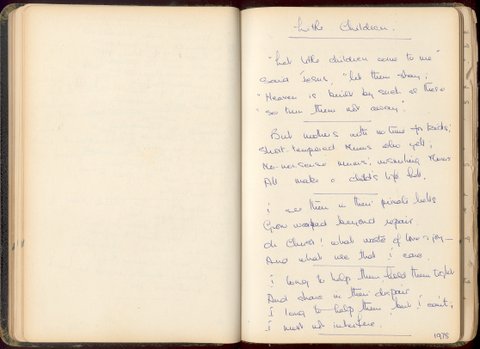 Little Children.
"Let little children come to me"
Said Jesus, "let them stay;
"Heaven is built by such as these
"so turn them not away."
But mothers with no time for kids;
Short-tempered Mums who yell;
No-nonsense mums; insulting Mums
All make a child's life hell.
I see them in their private hells
Grow warped beyond repair.
Oh Christ! what waste of love & joy —
And what use that I care.
I long to help them hold them tight
And share in their despair
I long to help them, but I can't;
I must not interfere.
1978